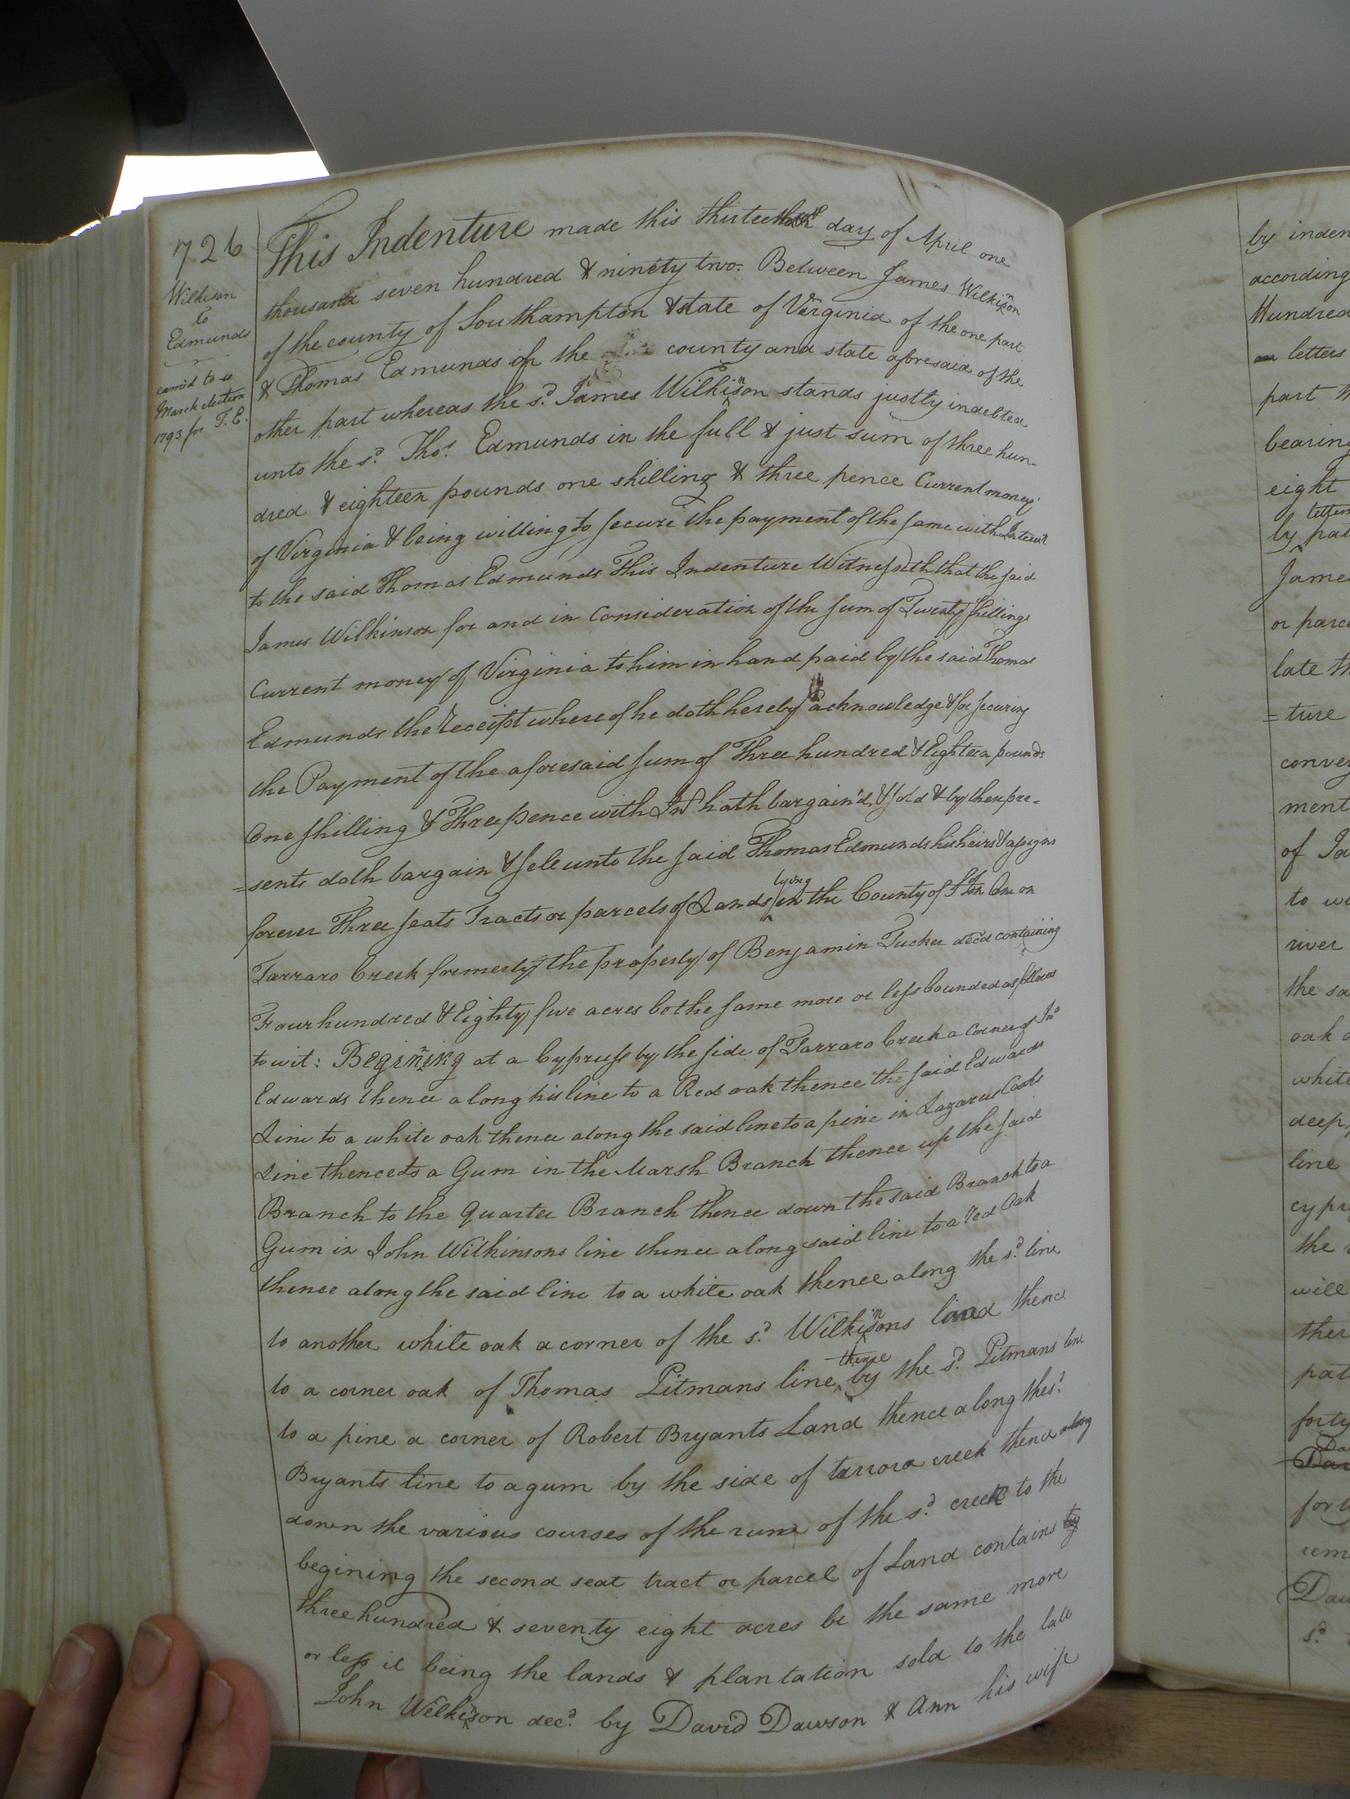 726
Wilkison
to
Edmunds
March election
1793 for T. E.
This Indenture made this thirteenth day of April one
thousand seven hundred & ninety two. Between James Wilkinson
of the county of Southampton & state of Virginia of the one part
& Thomas Edmunds of the county and state aforesaid of the
other part whereas the sd. James Wilkinson stands justly indebted
unto the sd. Thos. Edmunds in the full & just sum of three hun-
dred & eighteen pounds one shilling & three pence Current money
of Virginia & being willing to secure the payment of the same with Interest
to the said Thomas Edmunds This Indenture Witnesseth that the said
James Wilkinson for and in Consideration of the sum of Twenty shillings
Current money of Virginia to him in hand paid by the said Thomas
Edmunds the receipt whereof he doth hereby acknowledge & for securing
the Payment of the aforesaid sum of Three hundred & Eighteen pounds
One shilling & Three pence with Int. hath bargain'd & sold & by these pre-
=sents doth bargain & sele unto the said Thomas Edmunds his heirs & assigns
forever Three seats Tracts or parcels of Lands lying in the County of One on
Tarraro Creek formerly the property of Benjamin Tucker decd containing
Four hundred & Eighty five acres be the same more or less bounded as follows
to wit: Begining at a Cypruss by the side of Tarraro Creek a Corner of Jno
Edwards thence along his line to a Red oak thence the said Edwards
Line to a white oak thence along the said line to a pine in Lazarus Cooks
Line thence to a Gum in the Marsh Branch thence up the said
Branch to the Quarter Branch thence down the said Branch to a
Gum in John Wilkinsons line thence along said line to a red Oak
thence along the said line to a white oak thence along the sd. line
to another white oak a corner of the sd. Wilkinsons land thence
to a corner oak of Thomas Pitmans line, thence by the sd. Pitmans line
to a pine a corner of Robert Bryants Land thence along the sd.
Bryants line to a gum by the side of tarroro creek thence along
down the various courses of the rune of the sd. creek to the
begining the second seat tract or parcel of Land contains
three hundred & seventy eight acres be the same more
or less it being the lands & plantation sold to the late
John Wilkinson decd. by David Dawson & Ann his wife
by inden
according
Hundred
letters
part
bearing
eight
letters
by pat
Jame
or parc
late th
=ture
convey
ment
of Ja
to wi
river
the sa
oak a
white
deep
line
cypr
the
will
ther
pat
forty
Da
for
rem
Daw
sd.